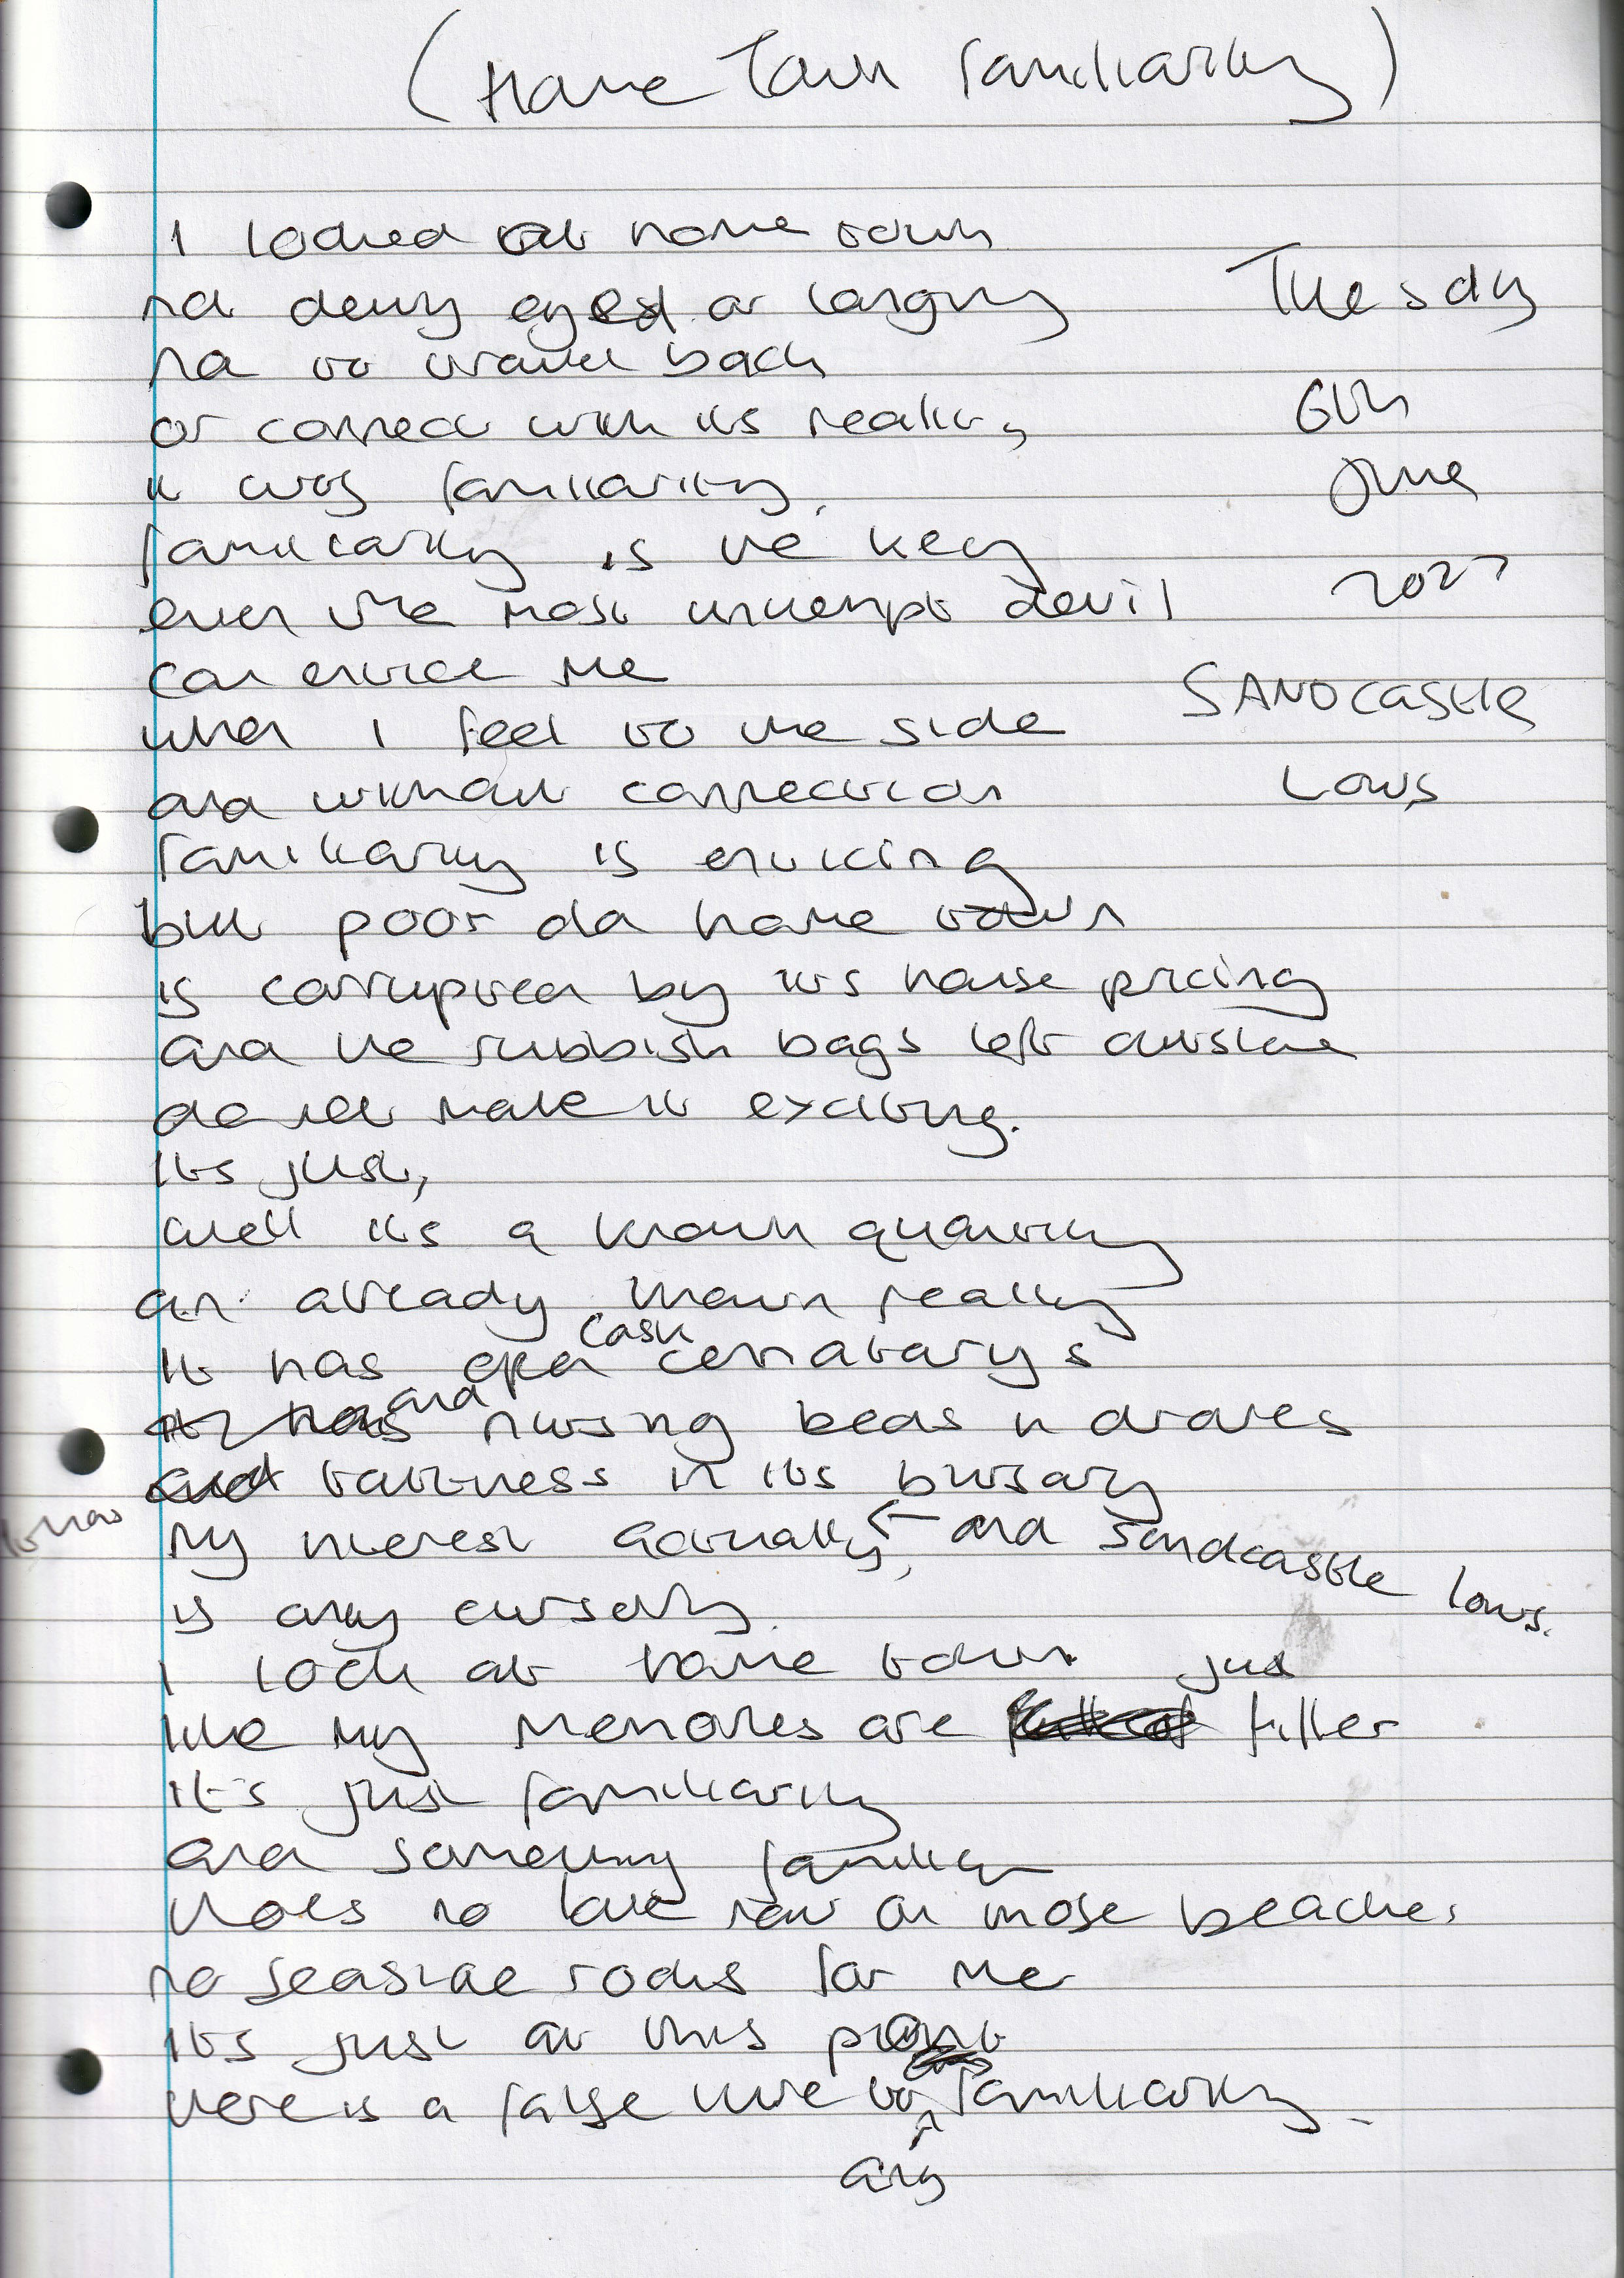 (Home Town familiarity)
I looked at home town
not dewy eyed or longing
not to travel back
or connect with its reality,
it was familiarity,
familiarity is the key
even the most unkempt devil
can entice me
when I feel to the side
and without connection
familiarity is enticing
but poor old home town
is corrupted by its house pricing
and the rubbish bags left outside
do not make it exciting.
its just,
well its a known quantity
an already known reality
cash
it has open
and nursing beds in droves
tartness in its bursary
it has
my interest actually, ← and Sandcastle lows.
is only cursory.
I look at home town just
like my memories are filler
it's just familiarity
and something familiar
theres no love now on those beaches
no seaside rocks for me
its just at this point
there is a false lure to familiarity.
any
Tuesday
6th
June
2023
SANDCASTLE
Lows